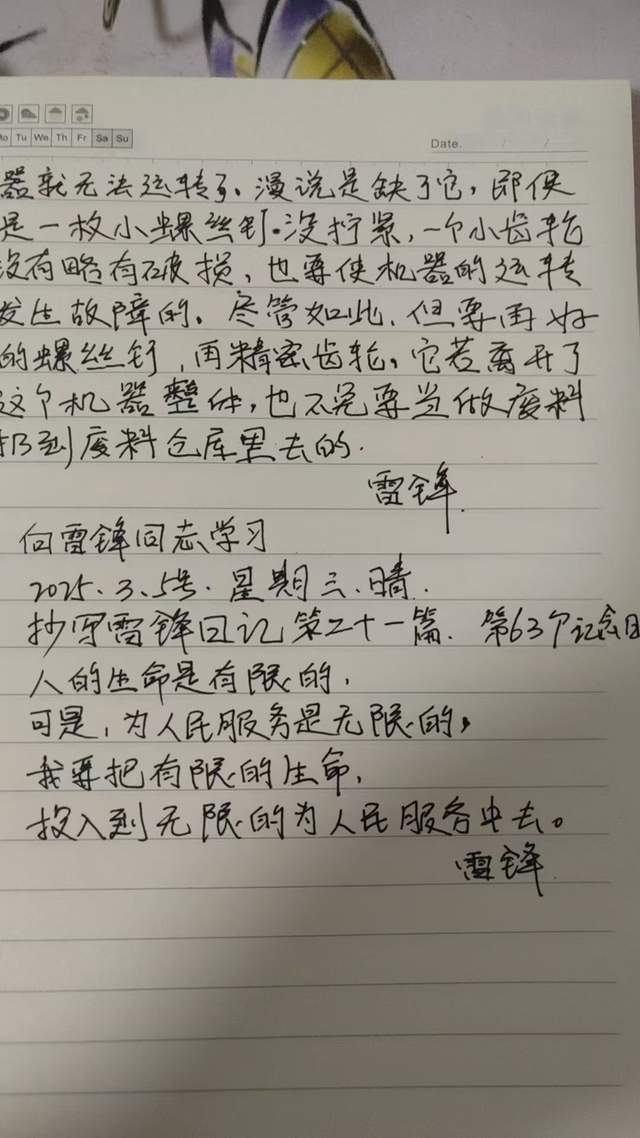 Mo Tu We Th Fr Sa Su
Date. / /
器就无法运转了。漫说是缺了它，即使
是一枚小螺丝钉没拧紧，一个小齿轮
没有略有破损，也要使机器的运转
发生故障的。尽管如此，但要再好
的螺丝钉，再精密齿轮，它若离开了
这个机器整体，也不免要当做废料
扔到废料仓库里去的.
雷锋.
向雷锋同志学习
2025.3.5号.星期三.晴.
抄写雷锋日记第二十一篇. 第63个记念日
人的生命是有限的，
可是，为人民服务是无限的，
我要把有限的生命，
投入到无限的为人民服务中去。
雷锋